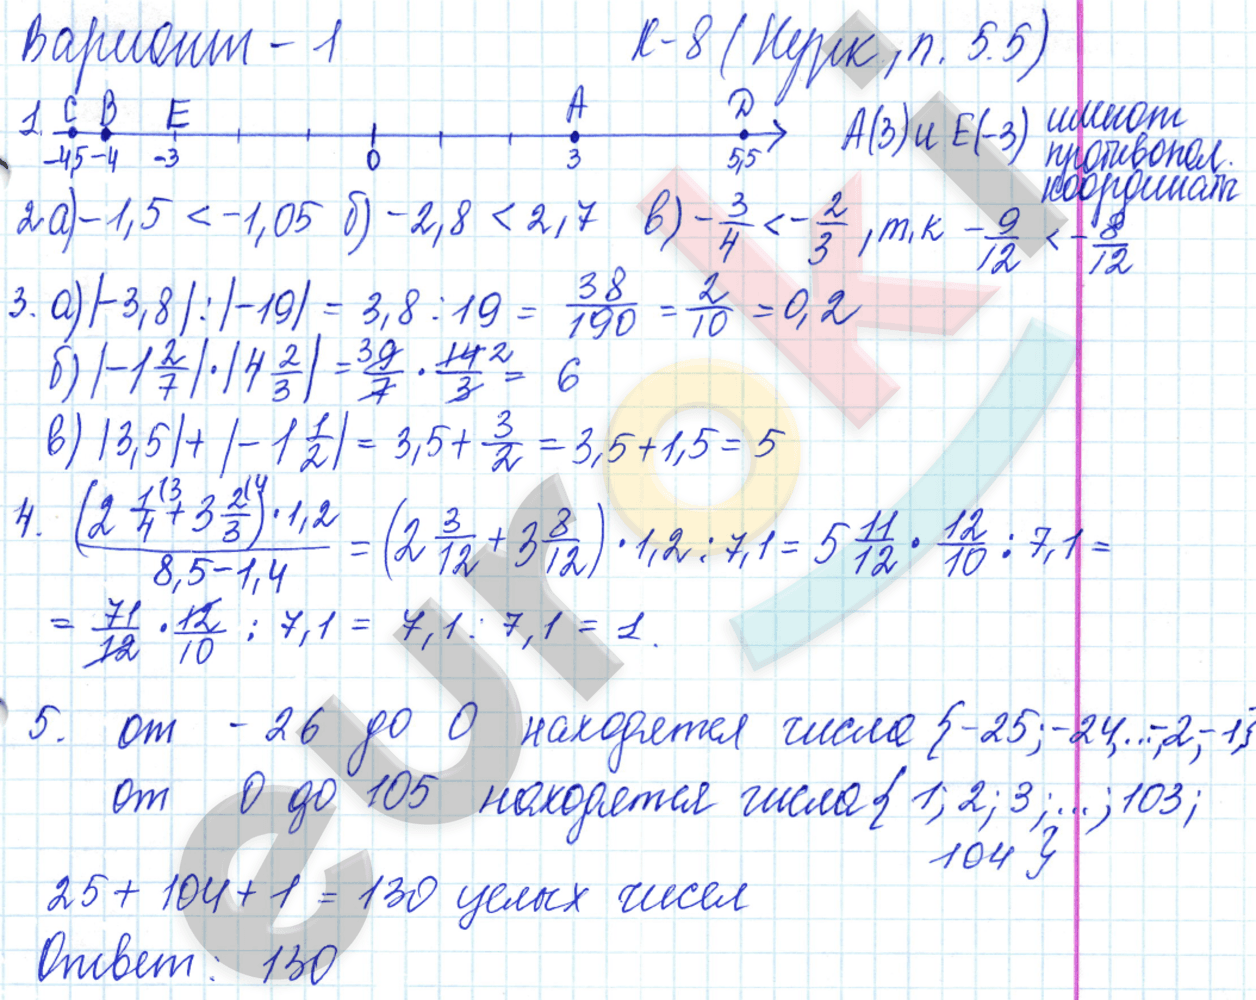 Вариант - 1 К-8 (Нурк, п. 5.5)
1. C B E A D
-4,5 -4 -3 0 3 5,5
A(3) и E(-3) имеют
противопол.
координаты
2 а) -1,5 < -1,05 б) -2,8 < 2,7 в) -3/4 < -2/3, т.к -9/12 < -8/12
3. а) |-3,8| : |-19| = 3,8 : 19 = 38/190 = 2/10 = 0,2
б) |-1 2/7| · |4 2/3| = 3 9/7 · 14 2/3 = 6
в) |3,5| + |-1 1/2| = 3,5 + 3/2 = 3,5 + 1,5 = 5
4. (2 1/4 (3 + 3 2/3 (4) · 1,2 / 8,5 - 1,4 = (2 3/12 + 3 8/12) · 1,2 : 7,1 = 5 11/12 · 12/10 : 7,1 =
= 71/12 · 12/10 : 7,1 = 7,1 : 7,1 = 1.
5. от -26 до 0 находятся числа {-25; -24, ...; -2; -1}
от 0 до 105 находятся числа { 1; 2; 3; ...; 103;
104 }
25 + 104 + 1 = 130 целых чисел
Ответ: 130
euroki